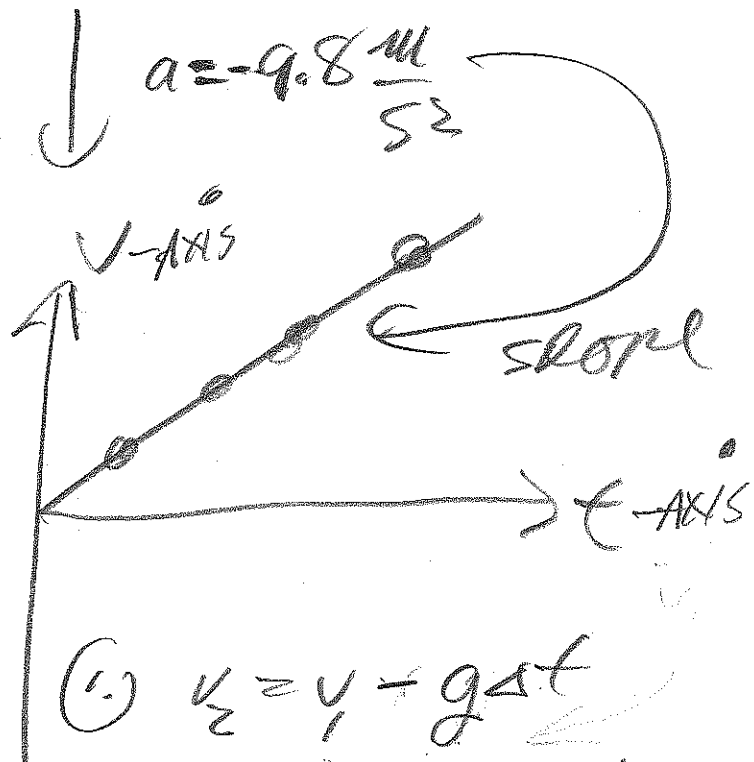 a = -9.8 m/s²
V-AXIS
SLOPE
t-AXIS
∴ v₂ = v₁ - gΔt